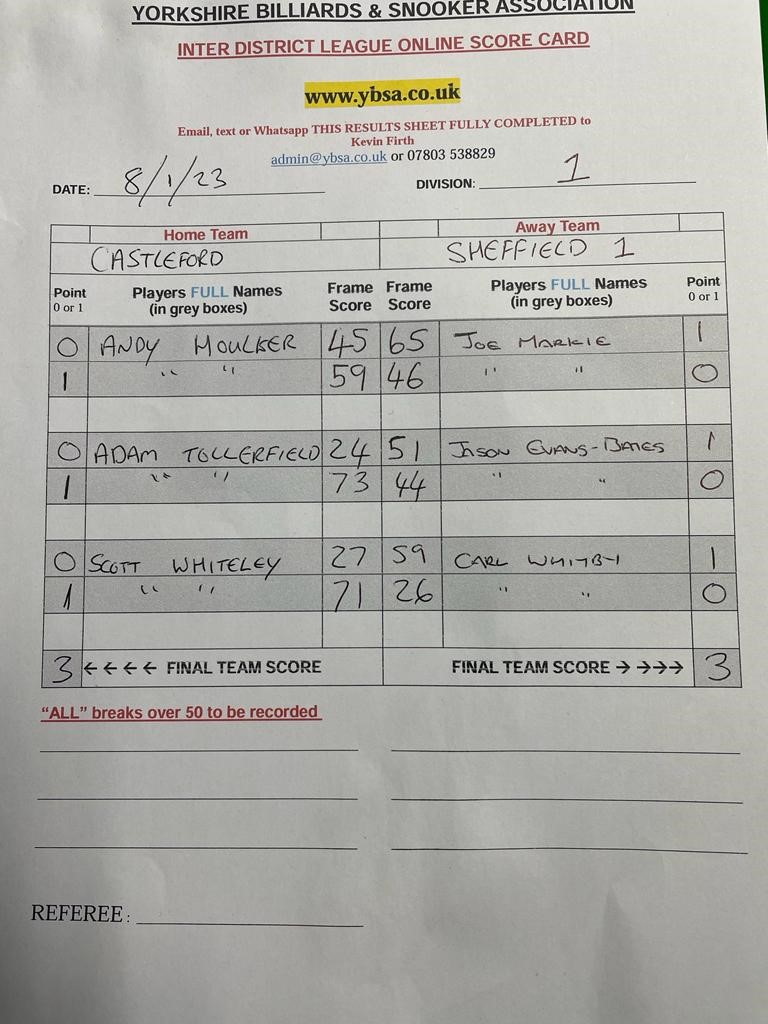 YORKSHIRE BILLIARDS & SNOOKER ASSOCIATION
INTER DISTRICT LEAGUE ONLINE SCORE CARD
www.ybsa.co.uk
Email, text or Whatsapp THIS RESULTS SHEET FULLY COMPLETED to
Kevin Firth
admin@ybsa.co.uk or 07803 538829
DATE: 8/1/23 DIVISION: 1
Home Team Away Team
CASTLEFORD SHEFFIELD 1
Point 0 or 1 Players FULL Names (in grey boxes) Frame Score Frame Score Players FULL Names (in grey boxes) Point 0 or 1
0 ANDY MOULKER 45 65 JOE MARKIE 1
1 " " 59 46 " " 0
0 ADAM TOLLERFIELD 24 51 JASON EVANS-BATES 1
1 " " 73 44 " " 0
0 SCOTT WHITELEY 27 59 CARL WHITBY 1
1 " " 71 26 " " 0
3 ←←←← FINAL TEAM SCORE FINAL TEAM SCORE →→→→ 3
"ALL" breaks over 50 to be recorded
REFEREE: